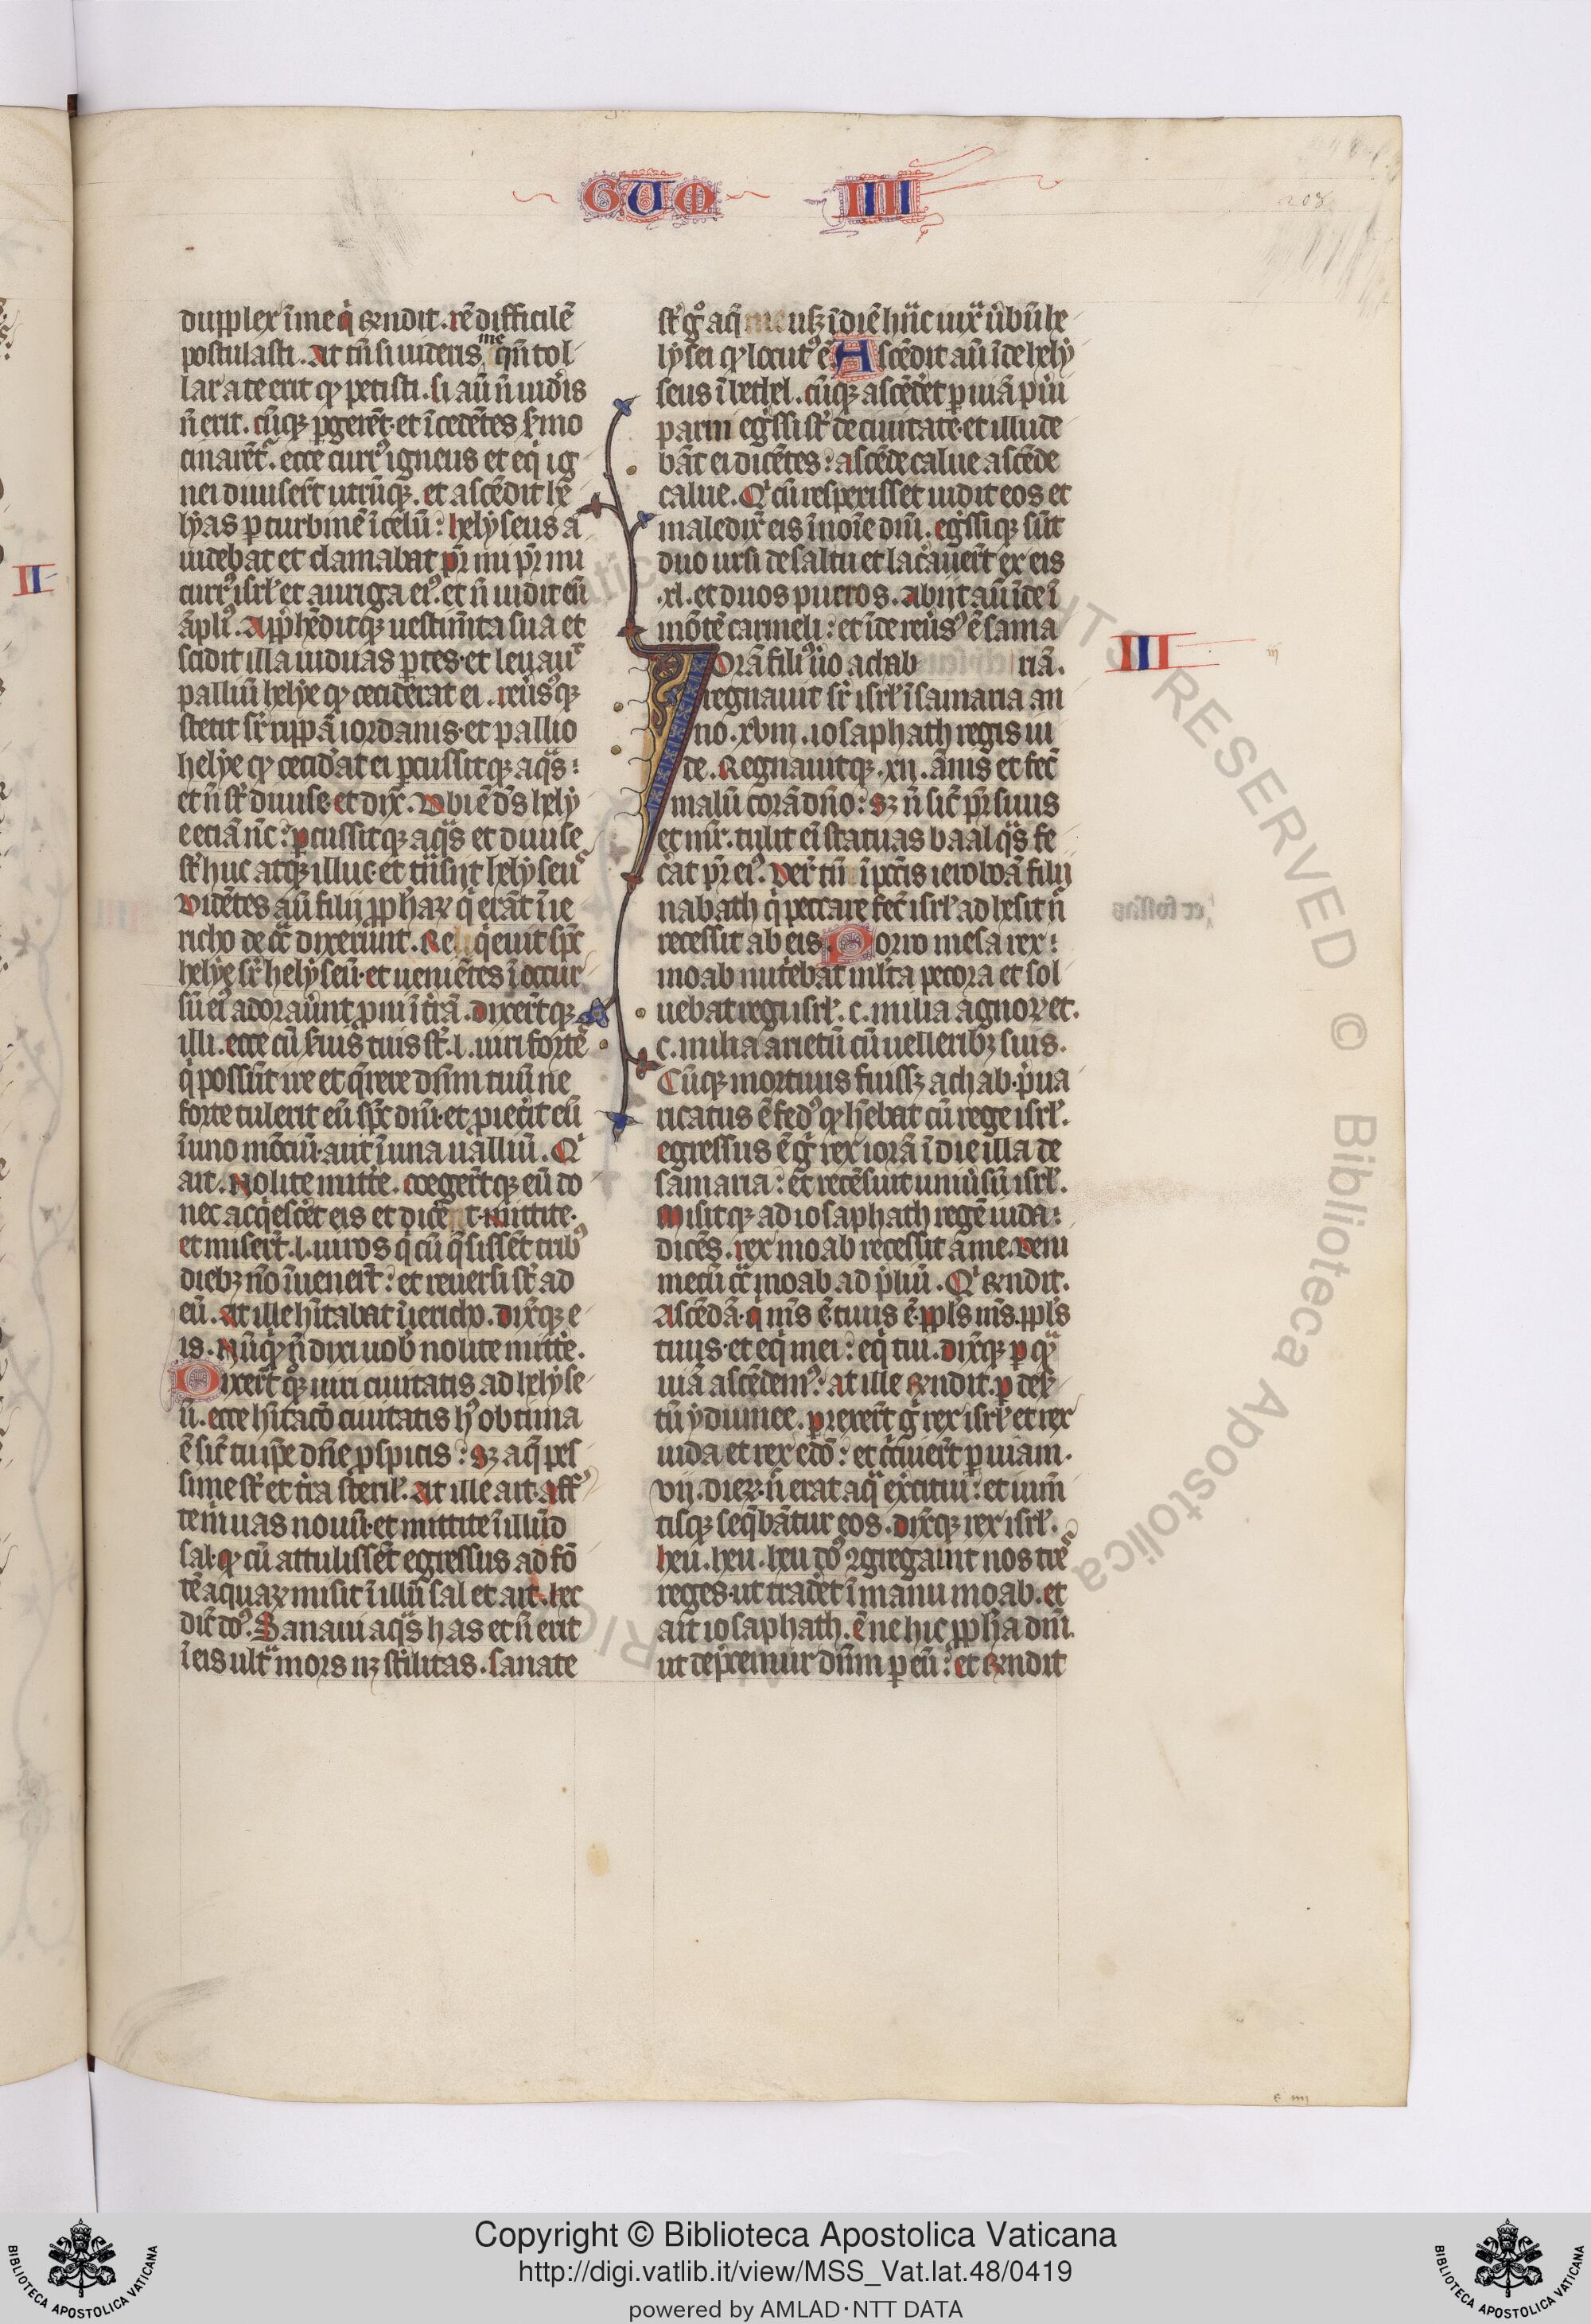 GUM IIII
208
dupplex ī me q̇ r̄ndit . rē difficilē
postulasti . At tn̄ si videris me qn̄ tol
lar a te erit qȝ petisti . si aū n̄ uid̄is
n̄ erit . cūqȝ p̄gerēt et īcedētes s̄mo
cinarēt᷑ . ecce curr᷒ igneus et eq̇ ig
nei diuiser̄t utrūqȝ . et ascēdit he
lyas p turbinē ī celū : helyseus ā
uidebat et clamabat pr̄ mi pr̄ mi
curr᷒ isrl̄ et auriga ei᷒ . et n̄ uidit eū
āpli᷒ . App̄hēditqȝ uestim̄ta sua et
scidit illa ī duas ptes . et leuau᷑
palliū helye qȝ ceciderat ei . reuer̄s᷒qȝ
stetit sr̄ rippā iordanis . et pallio
helye qȝ cecid̄at ei pcussitqȝ aqᷓs :
et n̄ st̄ diuise . et dix̄ . Ubi ē ds̄ hely
e eciā nc̄ : pcussitqȝ aqᷓs et diuise
st̄ huc atqȝ illuc . et tn̄siit helyseu᷒
Uidētes aū filii pph̄aꝝ q̇ erāt ī ie
richo de cᷓ dixerunt . Re q̇euit spc̄
helye sr̄ helyseū . et uenietes ī occur
sū ei᷒ adorauer̄nt pni ī tr̄ā . dixer̄tqȝ
illi . ecce cū s̄uis tuis st̄ . l . uiri fortē
q̇ possūt ire et q̄rere dn̄m tuū ne
forte tulerit eū spc̄ dn̄i . et piec̄it eū
ī uno mōciū . aut ī una ualliū . Q᷒
ait . Nolite mitt̄e . coeger̄tqȝ eū do
nec acq̇escēt eis et dicēt . mittite .
et miser̄t . l . uiros q̇ cū q̄sissēt trib᷒
diebȝ nō īuener̄t : et reuersi st̄ ad
eū . At ille hītabat ī iericho . dix̄qȝ e
is . Nūqᷓ n̄ dixi uob̄ nolite mitt̄e .
Dixer̄t qȝ uiri ciuitatis ad helyse
ū . ecce hītac̄o ciuitatis h᷒ obtima
ē sic̄ tu ip̄e dn̄e pspicis : sȝ aq̄ pes
sime st̄ et tr̄a steril̄ . At ille ait . aff᷒
te m̄ uas nouū . et mittite ī illud
sal . qȝ cū attulissēt egressus ad fō
tē aquaꝝ misit ī illū sal et ait . hec
dic̄ do᷒ . Sanaui aqᷓs has et n̄ erit
ī eis ultᷓ mors nȝ st̄ilitas . sanate
st̄ g̊ aq̄ usqȝ ī diē hūc iuxᷓ ūbū he
lysei qȝ locut᷒ ē Ascēdit aū īde hely
seus ī bethel . cūqȝ ascēdēt p uiā pūi
parui eg̊ssi st̄ de ciuitate . et illude
bāt ei dicētes : ascēde calue ascēde
calue . Q᷒ cū respexisset uidit eos et
maledix̄ eis ī noīe dn̄i . eg̊ssiqȝ sūt
duo ursi de saltu et lac̄auer̄t ex eis
. xl . et duos pueros . Abiit aū īde ī
mōtē carmeli : et īde reuer̄s᷒ ē sama
riā .
III
Iorā fili᷒ uo achab
regnauit sr̄ isrl̄ ī samaria an
no . xviii . iosaphath regis iu
de . Regnauitqȝ . xii . ānis et fec̄
malū corā dn̄o : sȝ n̄ sic̄ pr̄ suus
et mr̄ . tulit eī statuas baal qᷓs fe
c̄at pr̄ ei᷒ . Uer̄ tn̄ ī pcc̄is ieroboā filii
nabath q̇ peccare fec̄ isrl̄ adhesit n̄
recessit ab eis . Porro mesa rex :
moab nutebat ml̄ta pecora et sol
uebat regi isrl̄ . c . milia agnoꝝ et .
c . milia arietū cū uelleribȝ suis .
Cūqȝ mortuus fuissȝ achab . p̄ua
ricatus ē fed᷒ qȝ hēbat cū rege isrl̄ .
egressus ē g̊ rex iorā ī die illa de
samaria : et recēsuit uniūsū isrl̄ .
Misitqȝ ad iosaphath regē iuda :
dicēs . rex moab recessit a me . ueni
mecū cᷓ moab ad p̄liū . Q᷒ r̄ndit .
Ascēdā . q̇ ms̄ ē . tuus ē . ppl̄s ms̄ . ppl̄s
tuus . et eq̇ mei : eq̇ tui . dix̄qȝ p qᷓ
uiā ascēdem᷒ : at ille r̄ndit . p deser̄
tū ydumee . prexer̄t g̊ rex isrl̄ et rex
iuda et rex edō : et c̄cuier̄t p uiam .
vii . dieꝝ . n̄ erat aqᷓ exc̄itui : et iumt̄
tisqȝ seqᷓbātur eos . dix̄qȝ rex isrl̄ .
heu . heu . heu do᷒ ꝯgregauit nos tre̅s
reges . ut tradēt ī manu moab . et
ait iosaphath . ē ne hic pph̄a dn̄i .
ut dep̄cemur dn̄m p eū : et r̄ndit
Copyright © Biblioteca Apostolica Vaticana
http://digi.vatlib.it/view/MSS_Vat.lat.48/0419
powered by AMLAD·NTT DATA
BIBLIOTECA APOSTOLICA VATICANA
BIBLIOTECA APOSTOLICA VATICANA